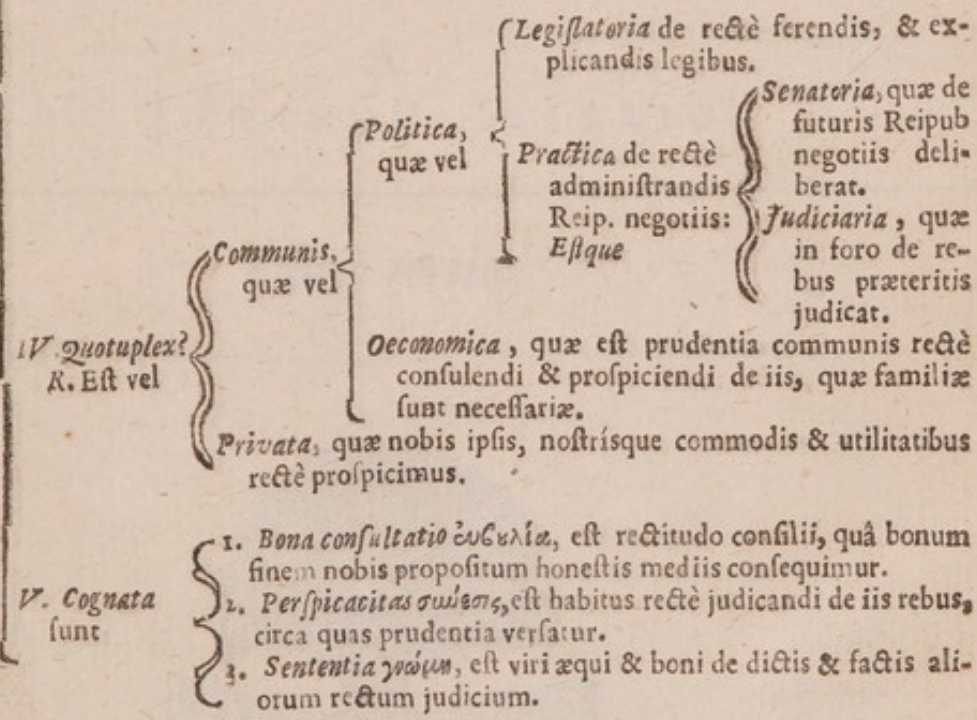 Legiſlatoria de rectè ferendis, & ex-
plicandis legibus.
Politica,
quæ vel
Practica de rectè
adminiſtrandis
Reip. negotiis:
Eſtque
Senatoria, quæ de
futuris Reipub
negotiis deli-
berat.
Judiciaria, quæ
in foro de re-
bus præteritis
judicat.
Communis,
quæ vel
Oeconomica, quæ eſt prudentia communis rectè
conſulendi & proſpiciendi de iis, quæ familiæ
ſunt neceſſariæ.
IV. Quotuplex?
R. Eſt vel
Privata, quæ nobis ipſis, noſtrísque commodis & utilitatibus
rectè proſpicimus.
V. Cognata
ſunt
1. Bona conſultatio ἐυβουλία, eſt rectitudo conſilii, quâ bonum
finem nobis propoſitum honeſtis mediis conſequimur.
2. Perſpicacitas σωύεσις, eſt habitus rectè judicandi de iis rebus,
circa quas prudentia verſatur.
3. Sententia γνώμη, eſt viri æqui & boni de dictis & factis ali-
orum rectum judicium.